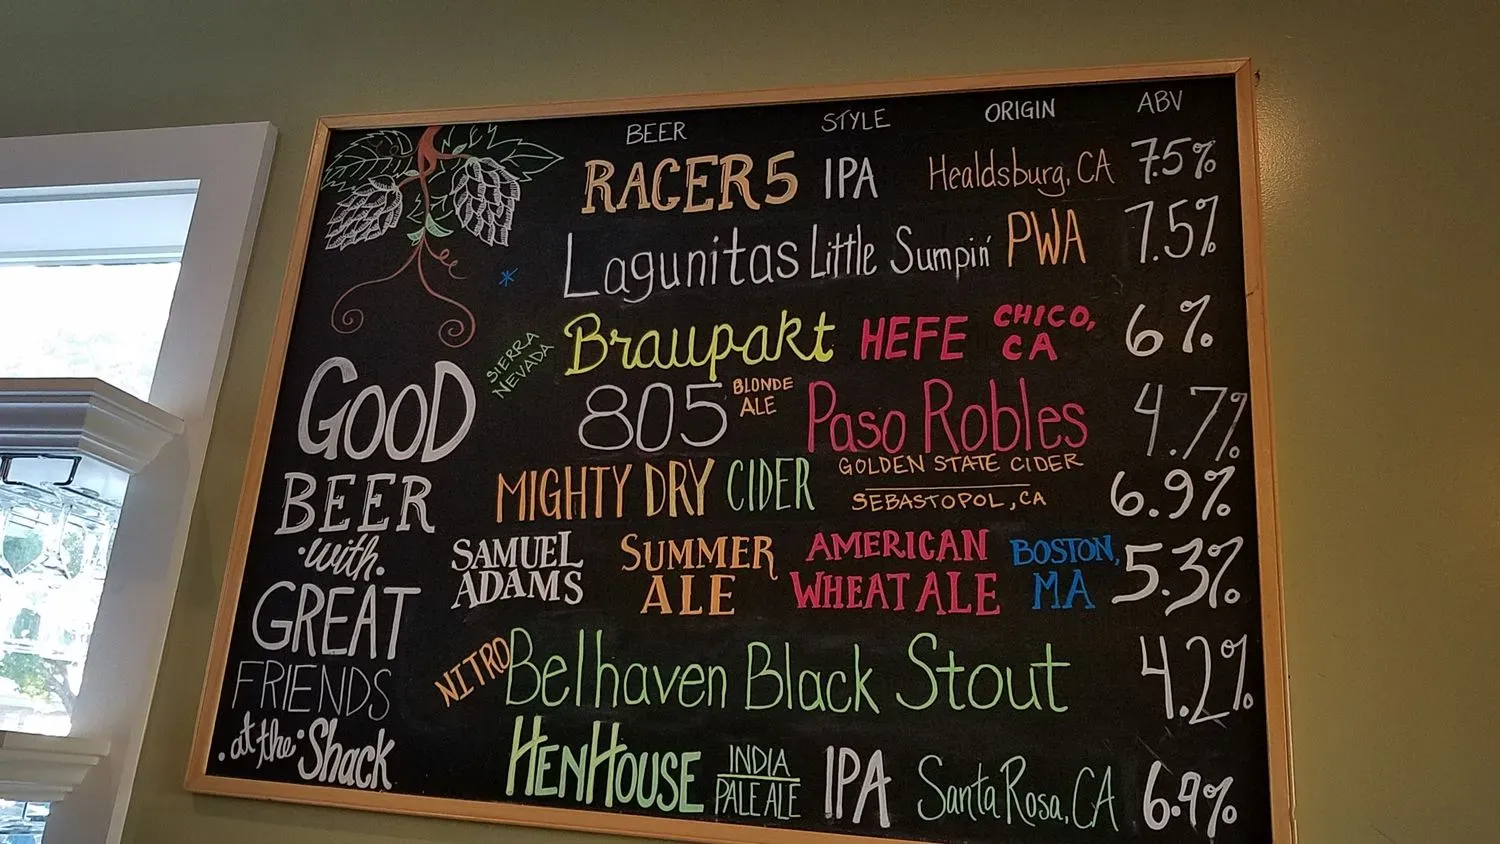 BEER STYLE ORIGIN ABV
RACER 5 IPA Healdsburg, CA 7.5%
Lagunitas Little Sumpin' PWA 7.5%
SIERRA NEVADA Braupakt HEFE CHICO, CA 6%
805 BLONDE ALE Paso Robles 4.7%
MIGHTY DRY CIDER GOLDEN STATE CIDER SEBASTOPOL, CA 6.9%
SAMUEL ADAMS SUMMER ALE AMERICAN WHEAT ALE BOSTON, MA 5.3%
NITRO Belhaven Black Stout 4.2%
HENHOUSE INDIA PALE ALE IPA Santa Rosa, CA 6.9%
GOOD
BEER
·with.
GREAT
FRIENDS
.at the·Shack